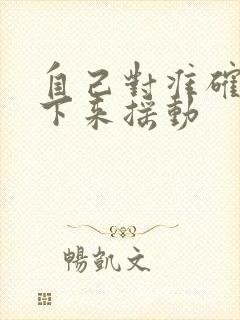 自己對准確
下來搖動
暢凱文